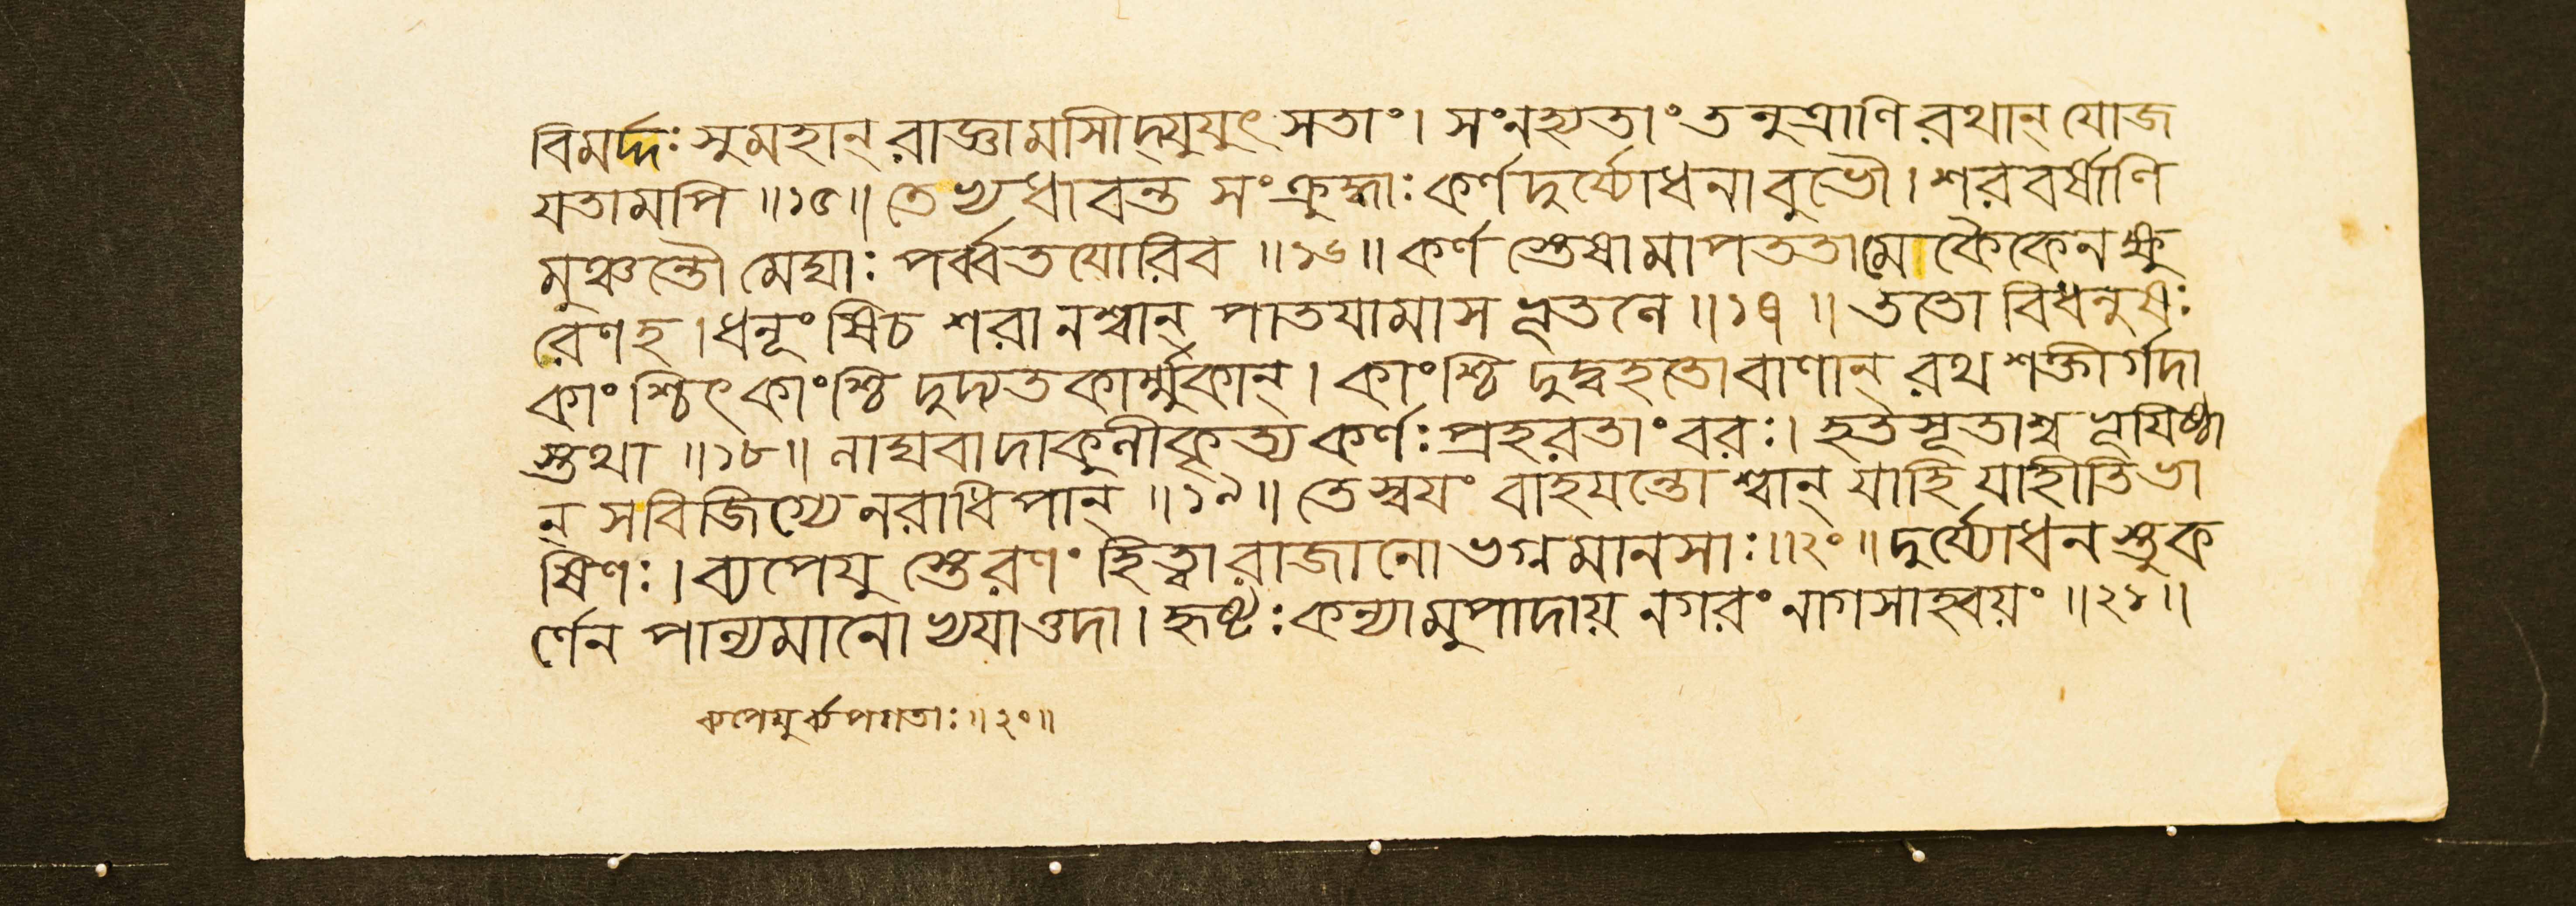 বিমর্দ্দঃ সুমহান্ রাজ্ঞামাসীদ্যুযুৎসতাং। সংনহ্যতাং তনুত্রাণি রথান্ যোজ
যতামপি ॥১৫॥ তেভ্যধাবন্ত সংক্রুদ্ধাঃ কর্ণদুর্য্যোধনাবুভৌ। শরবর্ষাণি
মুঞ্চন্তৌ মেঘাঃ পর্ব্বতযোরিব ॥১৬॥ কর্ণস্তেষামাপততামেকৈকেনক্ষু
রেণহ। ধনূংষিচ শরানশ্বান্ পাতযামাস ভূতলে ॥১৭॥ ততো বিধনুষঃ
কাংশ্চিৎকাংশ্চিদুদ্যতকার্ম্মুকান্। কাংশ্চিদুদ্বহতোবাণান্ রথশক্তীর্গদা
স্তথা ॥১৮॥ লাঘবাদাকুলীকৃত্য কর্ণঃ প্রহরতাংবরঃ। হতসূতাশ্চ ভূযিষ্ঠা
ন্ সবিজিগ্যেনরাধিপান্ ॥১৯॥ তেস্বযং বাহযন্তোশ্বান্ যাহি যাহীতিভা
ষিণঃ। ব্যপেযুস্তেরণং হিত্বারাজানো ভগ্নমানসাঃ॥২০॥ দুর্য্যোধনস্তুক
র্ণেন পাল্যমানোভ্যযাত্তদা। হৃষ্টঃ কন্যামুপাদায় নগরংনাগসাহ্বয়ং ॥২১॥
ব্যপেযুর্ব্যপগতাঃ॥২০॥